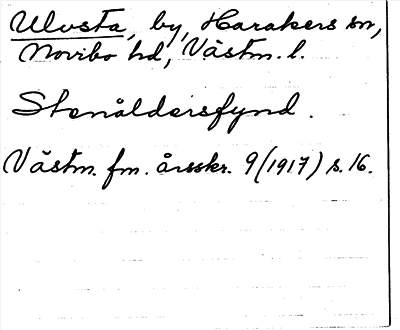 Ulvsta, by, Harakers sn,
Norrbo hd, Västm. l.
Stenåldersfynd.
Västm. fm. årsskr. 9 (1917) s. 16.